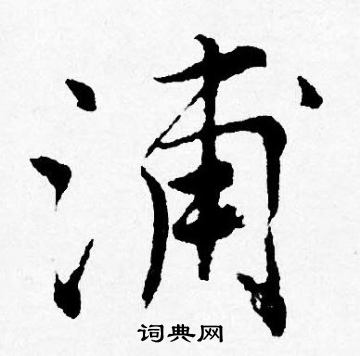 浦
词典网